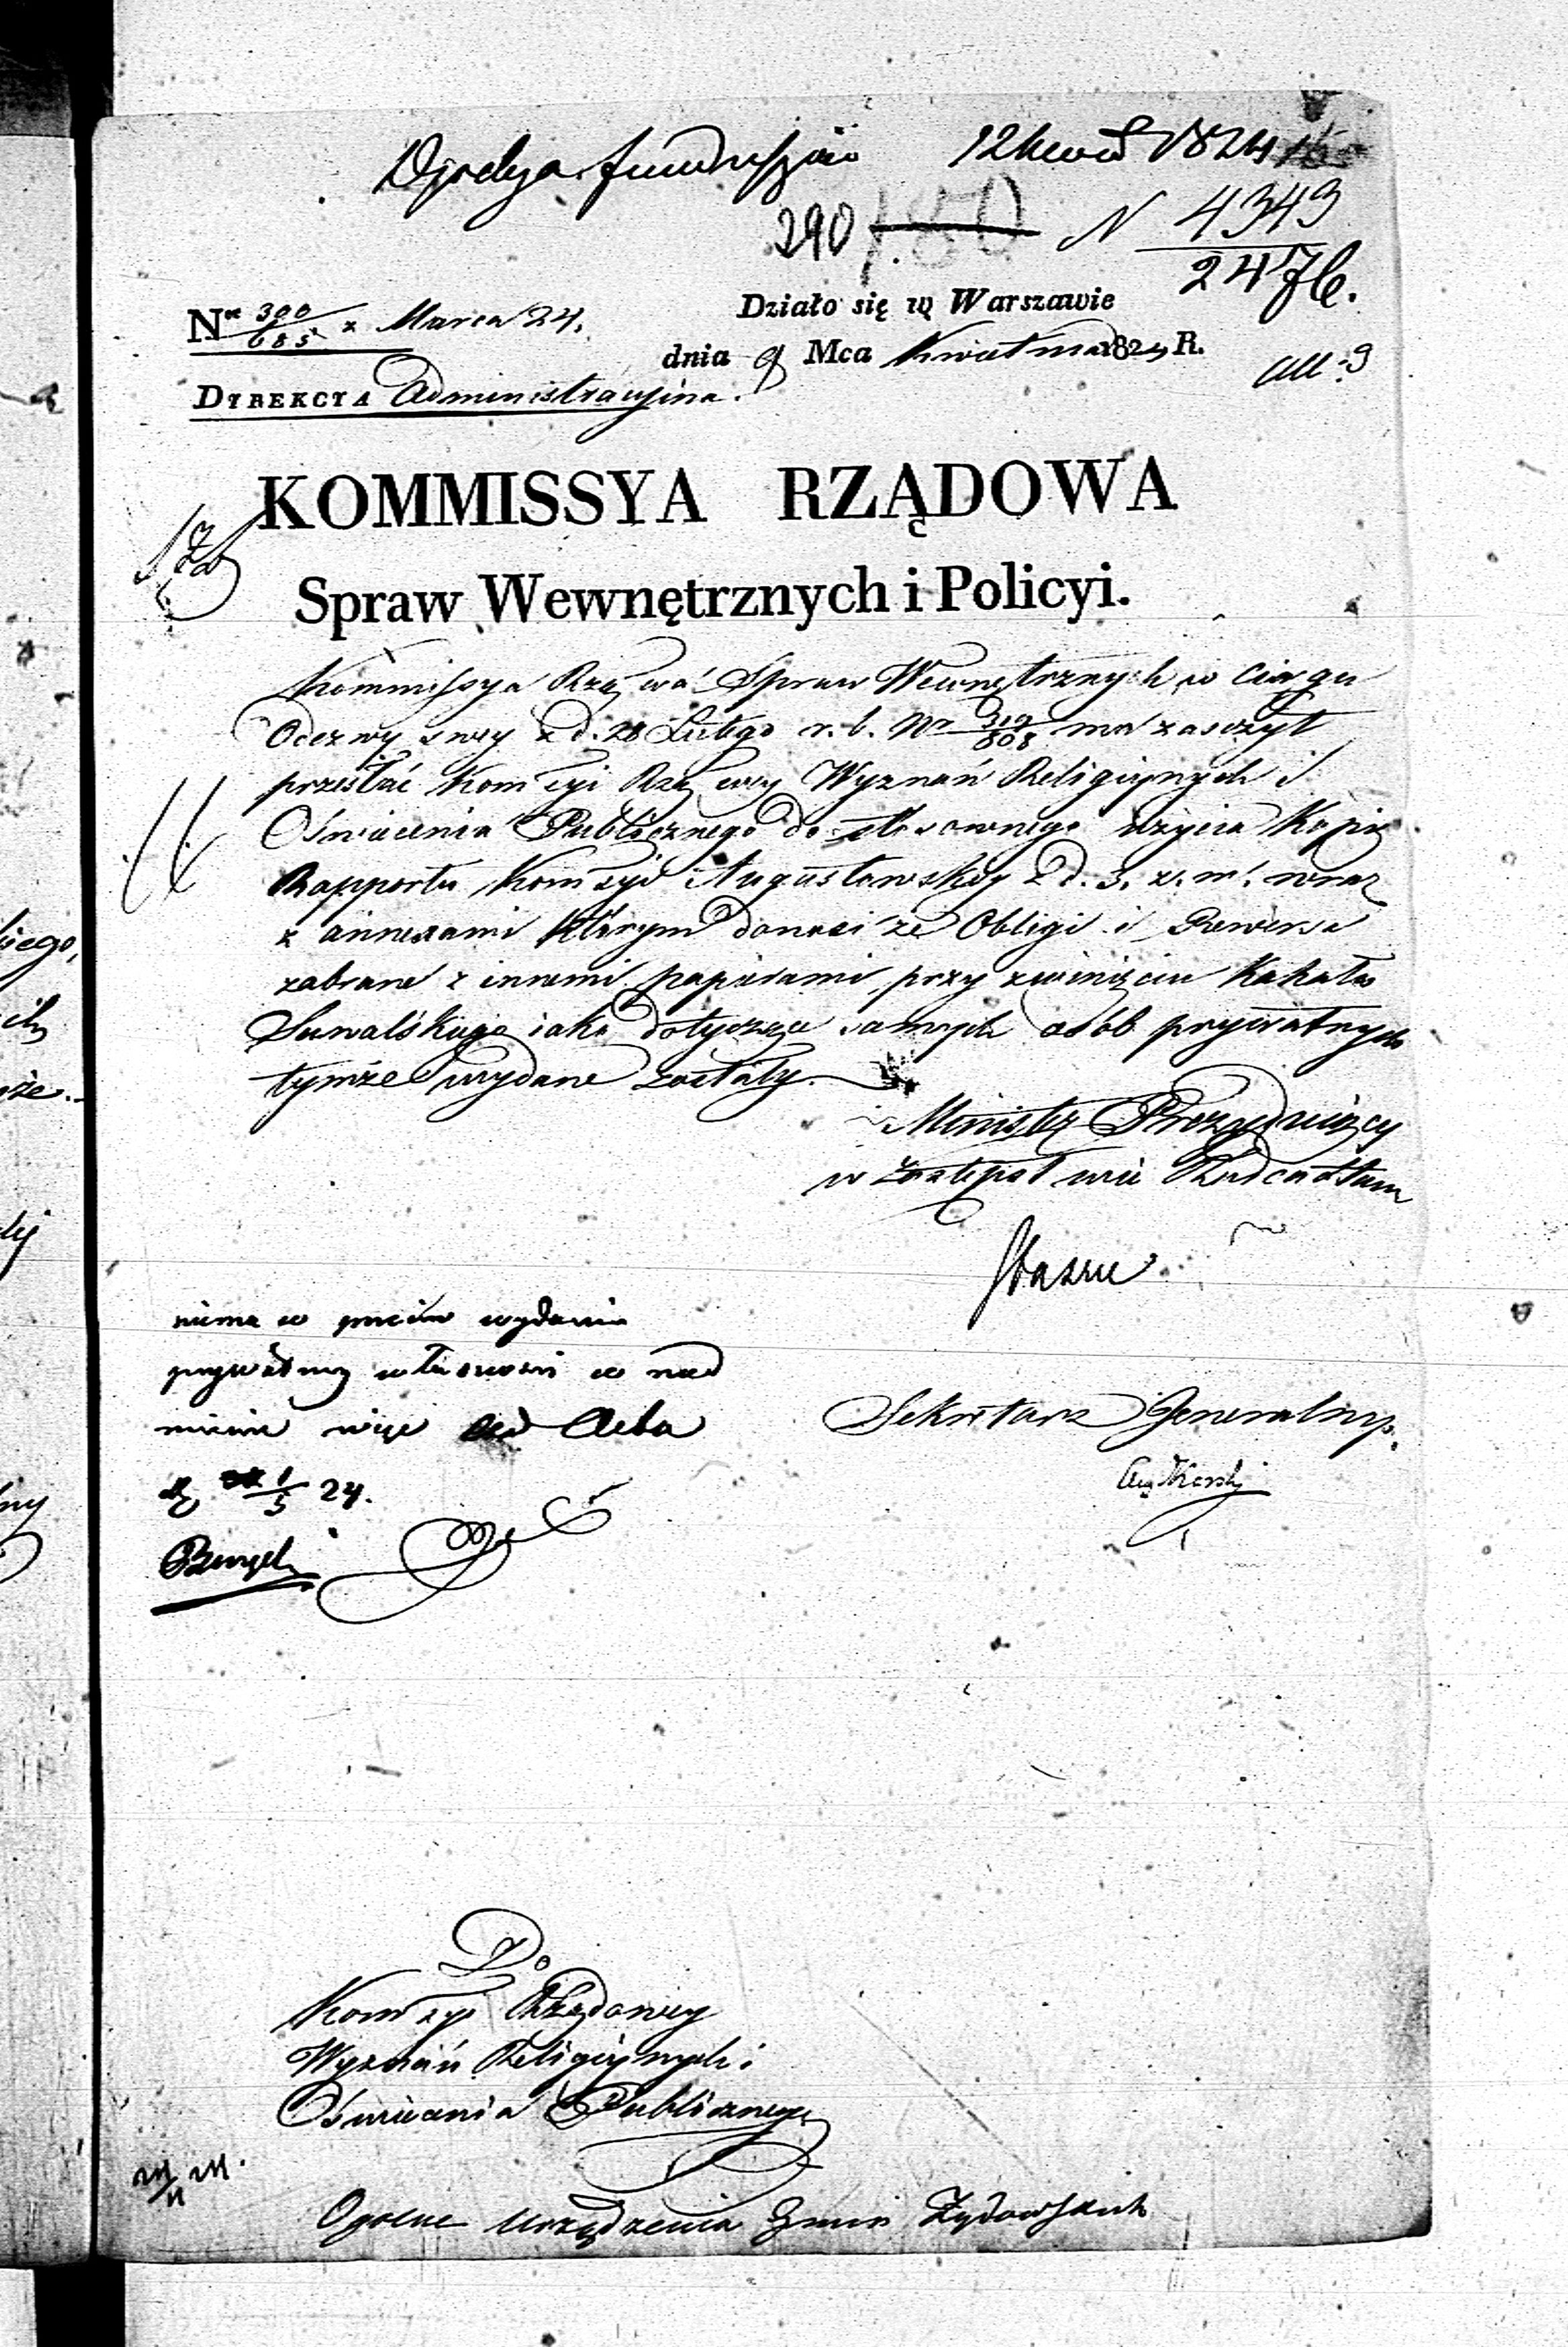 Dyrekcya funduszów 12 kwiet 1824
290 180 N 4343
2476.
Nr 300/685 x Marca 24.
Działo się w Warszawie
dnia 9 Mca Kwietnia 1824 R.
all: 9
DYREKCYA Administracyjna.
KOMMISSYA RZĄDOWA
Spraw Wewnętrznych i Policyi.
Kommissya Rząwa Spraw Wewnętrznych w ciągu
Odezwy swey z d. 28 Lutego r. b. Nr 319/808 ma zaszczyt
przesłać Kommsyi Rząwey Wyznań Religiynych i
Oświecenia Publicznego do stosownego użycia Kopię
Rapportu Kommsyi Augustowskiey z d. 3. z. m. wraz
z annexami którym donosi że Obligi i Rewersa
zabrane z innemi papierami przy zwinięciu Kahału
Suwalskiego iako dotyczące samych osób prywatnych
tymże wydane zostały.
Ministr Prezyduiący
w Zastępstwie Radca Stanu
Staszic
nic ma w przeciw wydaniu
prywatney własności
więc ad Acta
d. 1/5 24.
Sekretarz Generalny.
Do
Kommsyi Rządowey
Wyznań Religiynych i
Oświecenia Publicznego
Ogólne Urządzenia Gmin Żydowskich